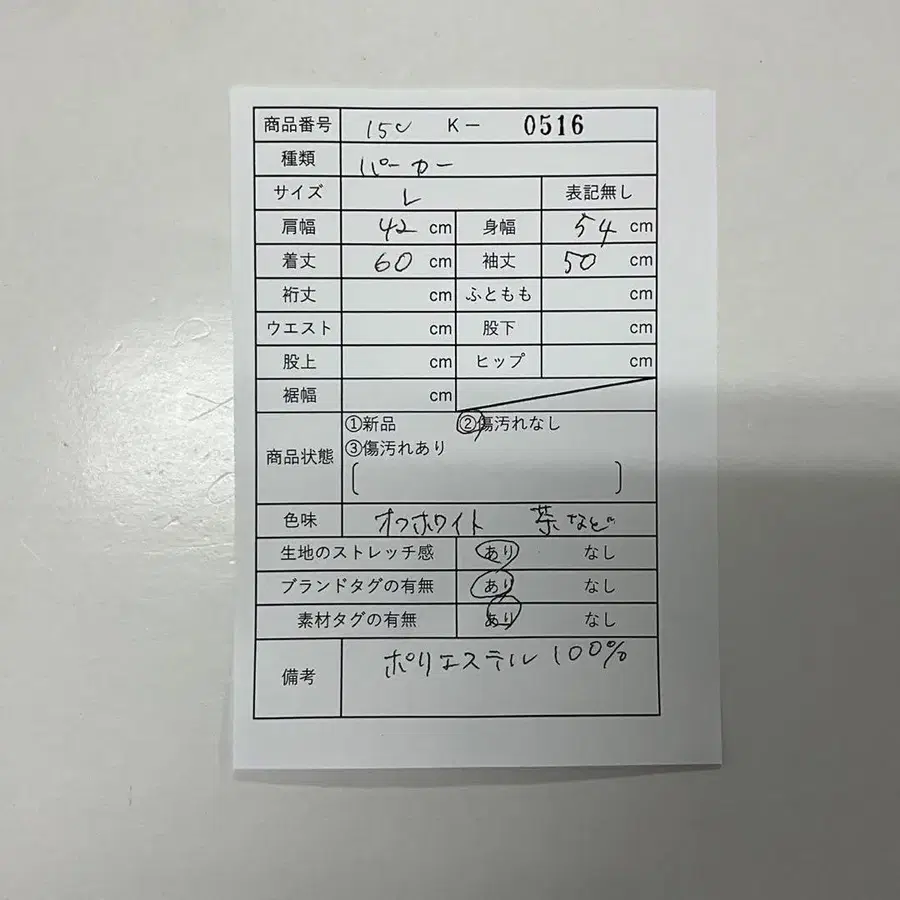 商品番号 150 K- 0516
種類 パーカー
サイズ L 表記無し
肩幅 42 cm 身幅 54 cm
着丈 60 cm 袖丈 50 cm
裄丈 cm ふともも cm
ウエスト cm 股下 cm
股上 cm ヒップ cm
裾幅 cm
商品状態 ①新品 ②傷汚れなし
③傷汚れあり
色味 オフホワイト 茶など
生地のストレッチ感 あり なし
ブランドタグの有無 あり なし
素材タグの有無 あり なし
備考 ポリエステル100%